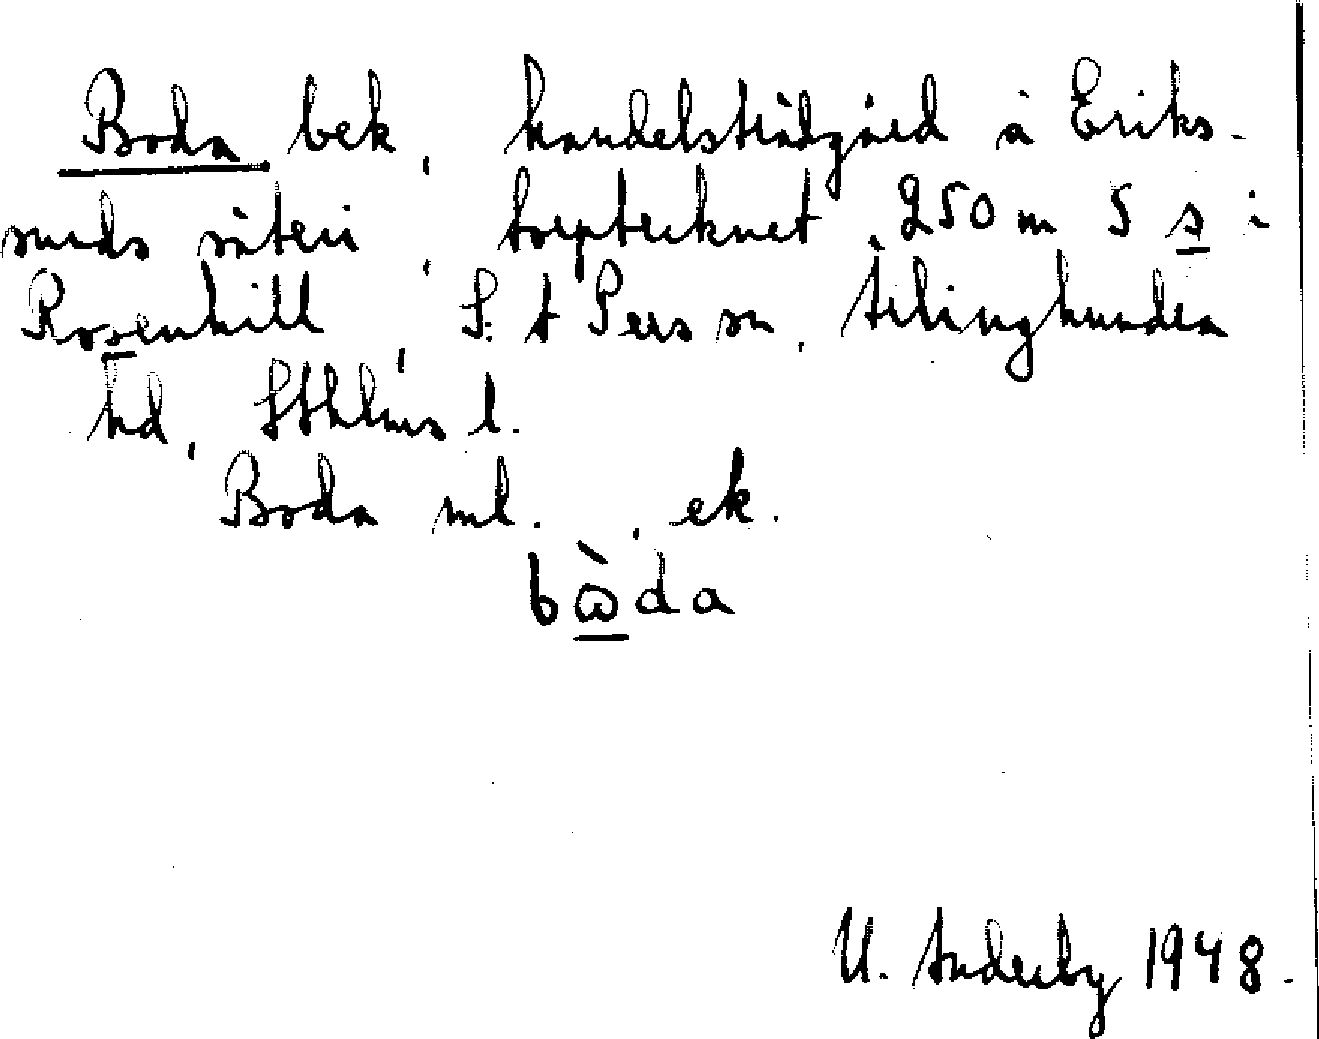 Boda bek, handelsträdgård å Eriks-
sunds säteri, torptecknet, 250 m S s i
Rosenkill, S:t Pers sn, Ärlinghundra
hd, Sthlms l.
Boda ml., ek.
bὼda
U. Anderby 1948.